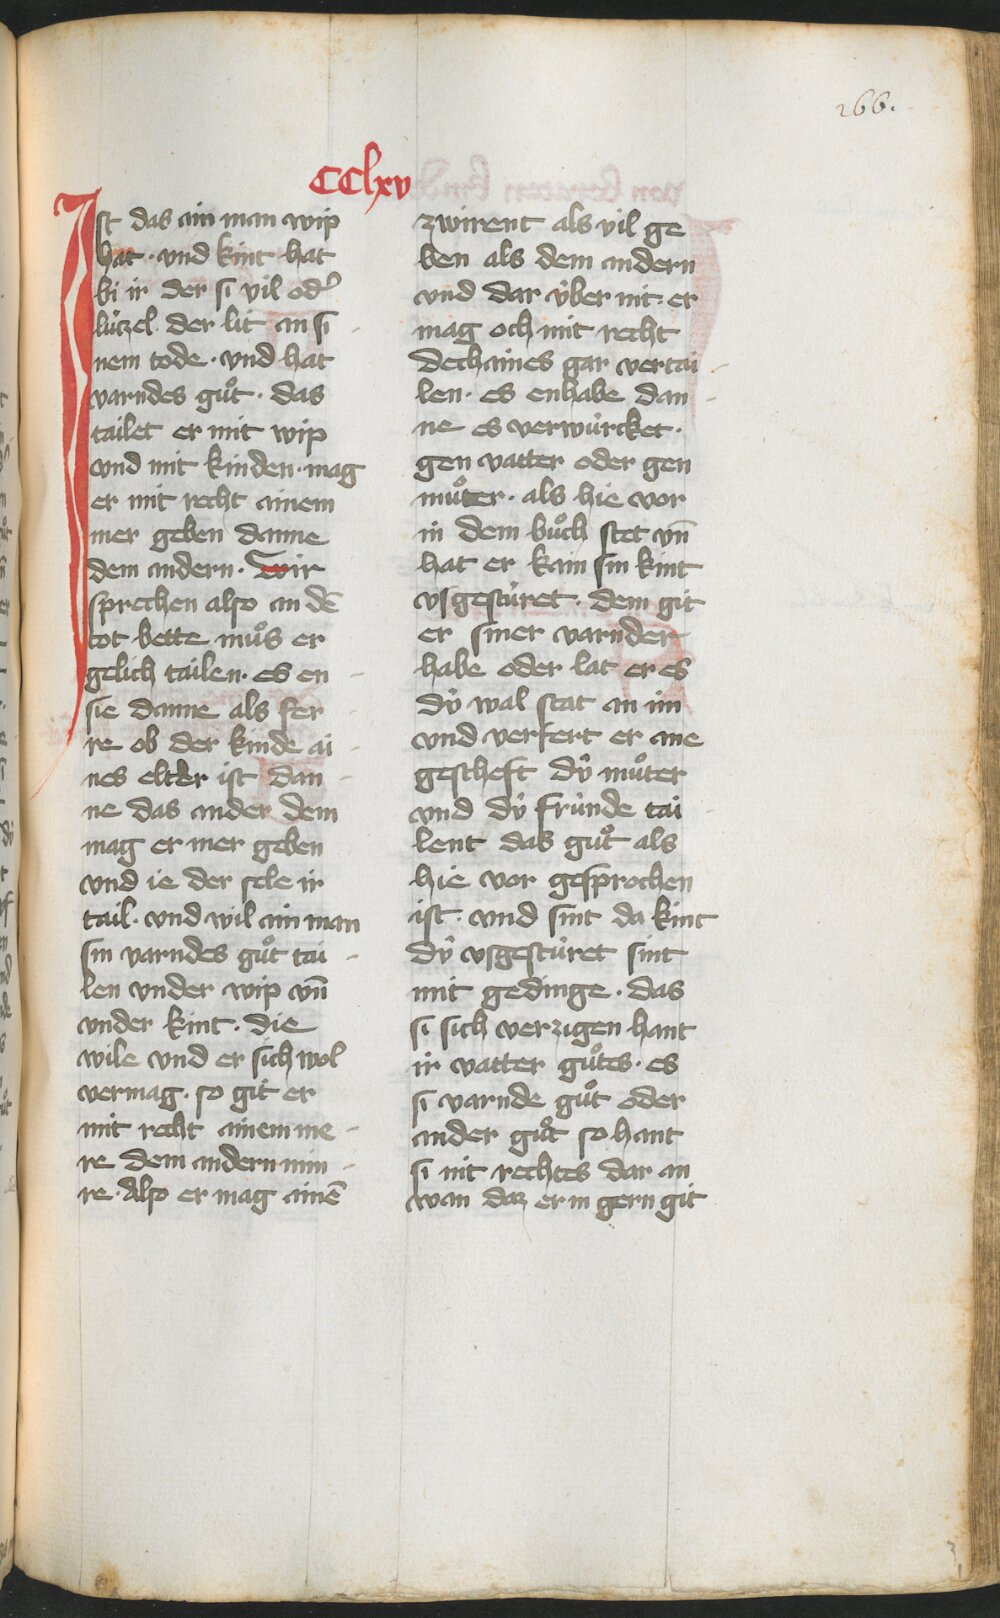 266.
CClxv
Ist das ain man wip
hat · vnd kint hat
bi ir der si vil od͛
lützel · der lit an si
nem tode · vnd hat
varndes guͦt · das
tailet er mit wip
vnd mit kinden · mag
er mit recht ainem
mer geben danne
dem andern · Wir
sprechen also an dē
tot bette muͦs er
gelich tailen · es en
sie danne als fer
re ob der kinde ai
nes elter ist dan
ne das ander dem
mag er mer geben
vnd ie der sele ir
tail · vnd wil ain man
sin varndes guͦt tai
len vnder wip vn̄
vnder kint · die
wile vnd er sich wol
vermag · so git er
mit recht ainem me
re dem andern min
re · Also er mag ainē
zwirent als vil ge
ben als dem andern
vnd dar v̇ber nit · er
mag och mit recht
dechaines gar vertai
len · es enhabe dan
ne es verwu̇rcket ·
gen vatter oder gen
muͦter · als hie vor
in dem buͦch stet vn̄
hat er kain sin kint
vsgestu̇ret · dem git
er siner varnder
habe oder lat er es
dv̇ wal stat an im
vnd verfert er ane
gescheft dv̇ muͦter
vnd dv̇ fru̇nde tai
lent das guͦt als
hie vor gesprochen
ist · vnd sint da kint
dv̇ vsgestu̇ret sint
mit gedinge · das
si sich verzigen hant
ir vatter guͦtes · es
si varnde guͦt oder
ander guͦt so hant
si nit rechtes dar an
wan daz er in gern git